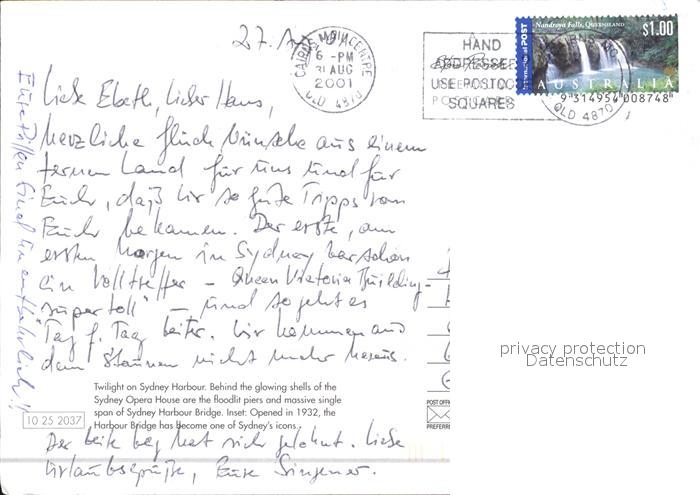 27. Aug.
Liebe Elseth, lieber Hans,
herzliche Glückwünsche aus einem
fernen Land für uns und für
Euch, daß wir so gute Tipps von
Euch bekamen. Der erste, am
ersten Morgen in Sydney war schon
ein Volltreffer – Queen Victoria Building –
"super toll" – und so geht es
Tag f. Tag weiter. Wir kommen aus
dem Staunen nicht mehr heraus.
Der weite Weg hat sich gelohnt. Liebe
Urlaubsgrüße, Eure
Eure Pillen sind unentbehrlich!!
Twilight on Sydney Harbour. Behind the glowing shells of the
Sydney Opera House are the floodlit piers and massive single
span of Sydney Harbour Bridge. Inset: Opened in 1932, the
Harbour Bridge has become one of Sydney's icons.
10 25 2037
CAIRNS MAIL CENTRE
6 - PM
31 AUG
2001
QLD 4870
HAND
ADDRESSED
USE POSTCODE
SQUARES
International POST
Nandroya Falls, Queensland
$1.00
AUSTRALIA
9 314954 008748
QLD 4870
POST OFFI
PREFERRE
privacy protection
Datenschutz